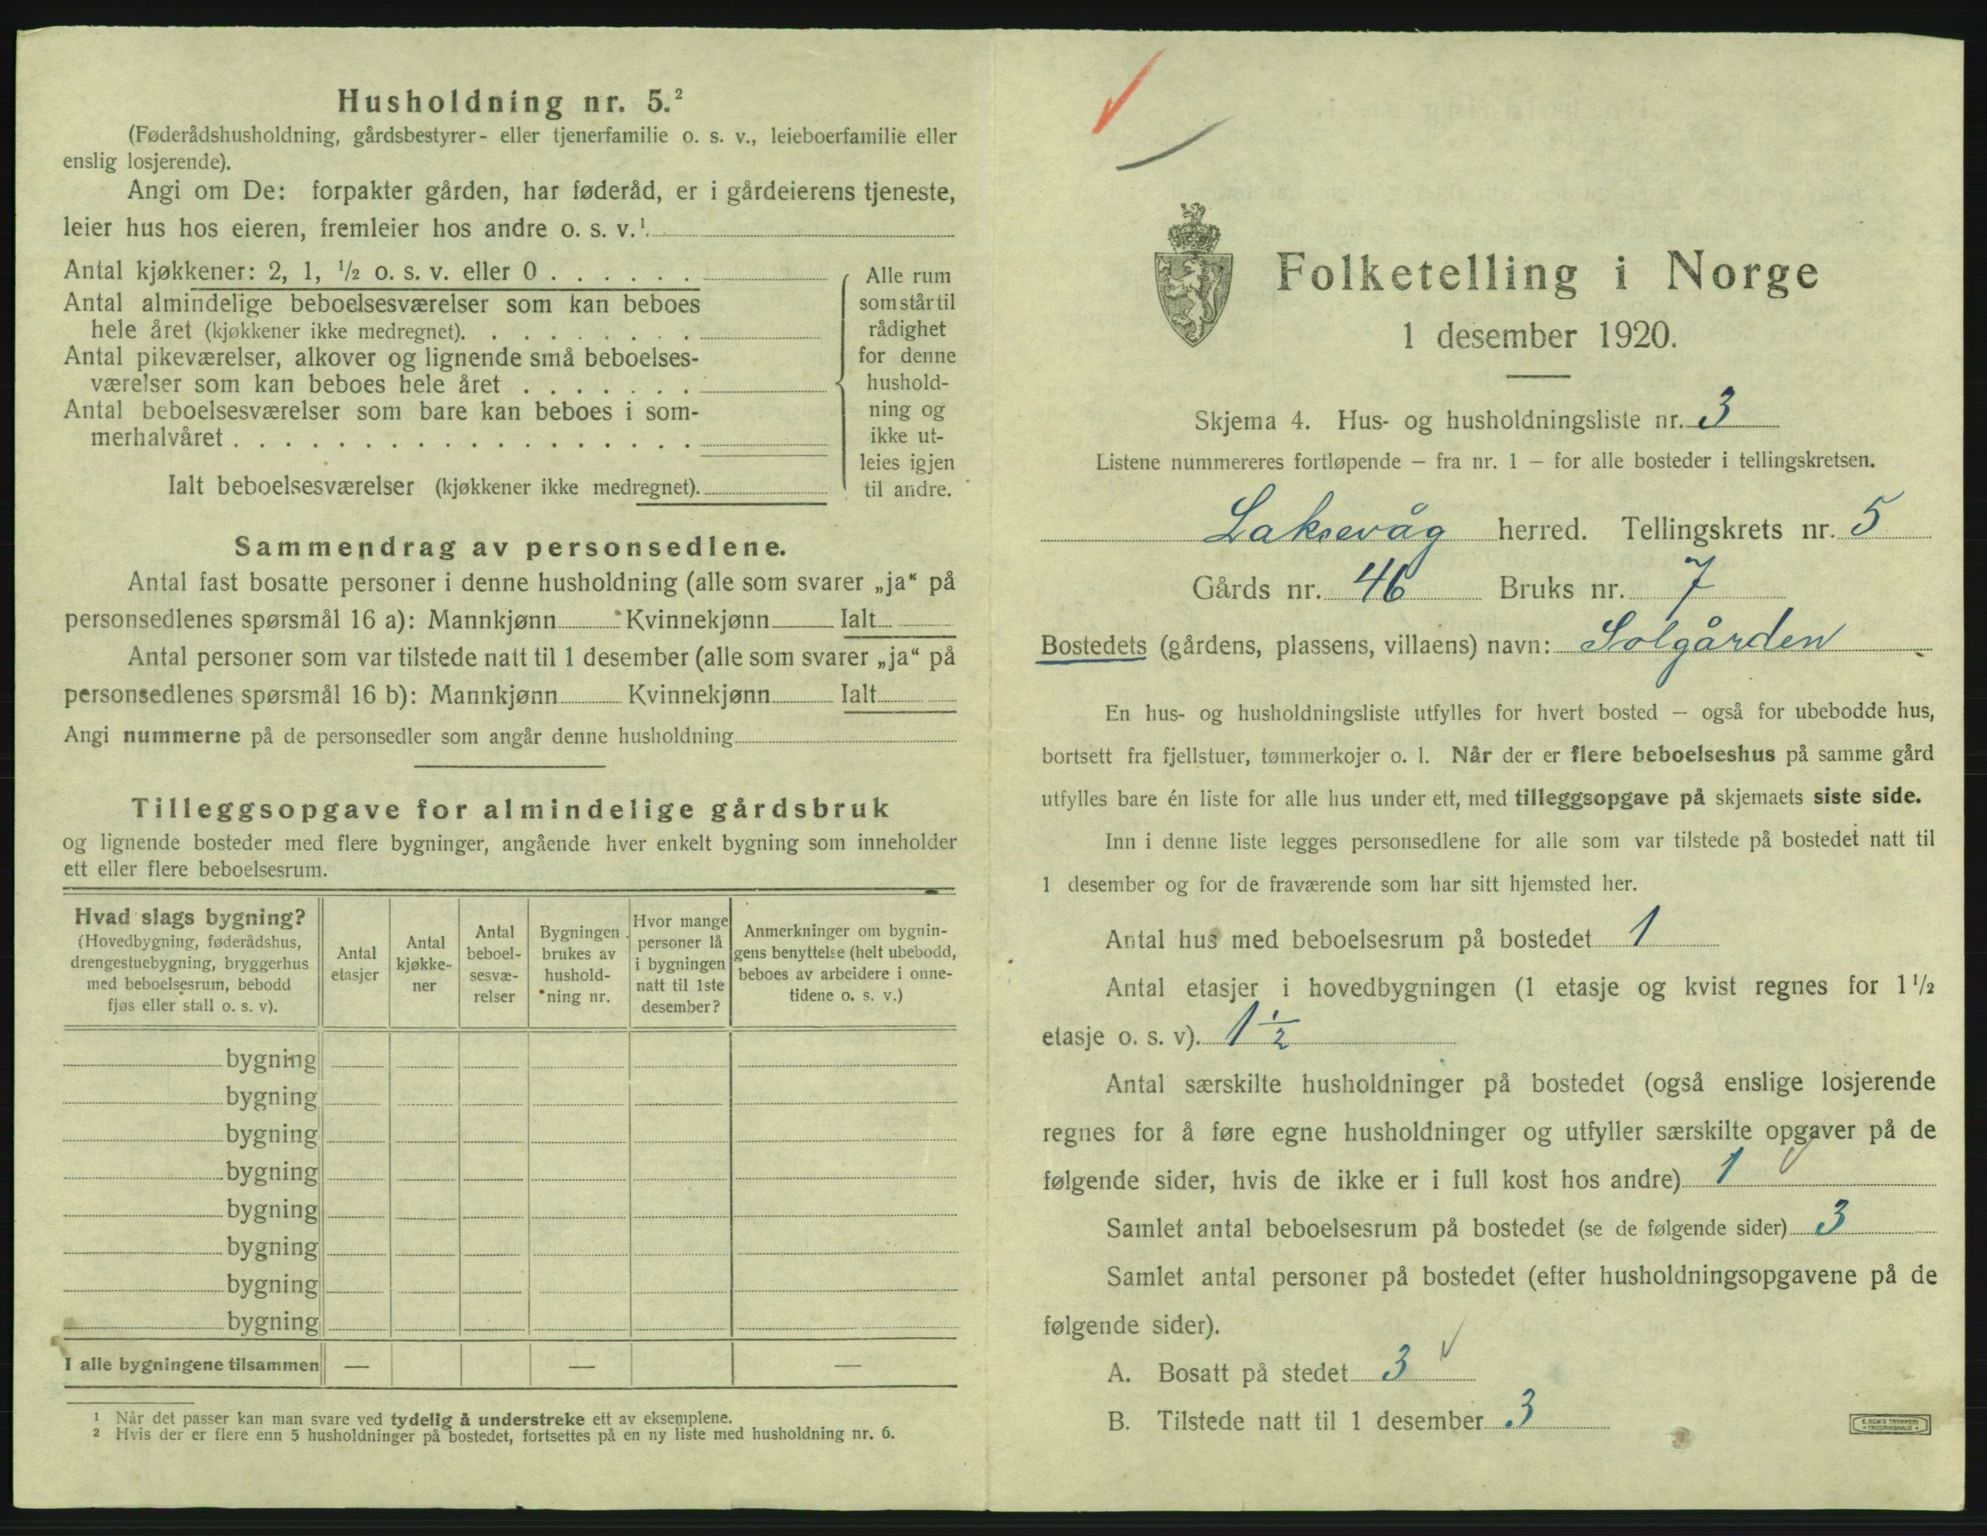 Husholdning nr. 5.²
(Føderådshusholdning, gårdsbestyrer- eller tjenerfamilie o. s. v., leieboerfamilie eller
enslig losjerende).
Angi om De: forpakter gården, har føderåd, er i gårdeierens tjeneste,
leier hus hos eieren, fremleier hos andre o. s. v.¹
Antal kjøkkener: 2, 1, ½ o. s. v. eller 0 . . . . . .
Antal almindelige beboelsesværelser som kan beboes
hele året (kjøkkener ikke medregnet). . . . . . . . .
Antal pikeværelser, alkover og lignende små beboelses-
værelser som kan beboes hele året . . . . . . .
Antal beboelsesværelser som bare kan beboes i som-
merhalvåret . . . . . . . . . . . . . . . . . .
Ialt beboelsesværelser (kjøkkener ikke medregnet).
Alle rum
som står til
rådighet
for denne
hushold-
ning og
ikke ut-
leies igjen
til andre.
Sammendrag av personsedlene.
Antal fast bosatte personer i denne husholdning (alle som svarer „ja“ på
personsedlenes spørsmål 16 a): Mannkjønn Kvinnekjønn Ialt
Antal personer som var tilstede natt til 1 desember (alle som svarer „ja“ på
personsedlenes spørsmål 16 b): Mannkjønn Kvinnekjønn Ialt
Angi nummerne på de personsedler som angår denne husholdning
Tilleggsopgave for almindelige gårdsbruk
og lignende bosteder med flere bygninger, angående hver enkelt bygning som inneholder
ett eller flere beboelsesrum.
Hvad slags bygning?
(Hovedbygning, føderådshus,
drengestuebygning, bryggerhus
med beboelsesrum, bebodd
fjøs eller stall o. s. v).
Antal
etasjer
Antal
kjøkke-
ner
Antal
beboel-
sesvæ-
relser
Bygningen
brukes av
hushold-
ning nr.
Hvor mange
personer lå
i bygningen
natt til 1ste
desember?
Anmerkninger om bygnin-
gens benyttelse (helt ubebodd,
beboes av arbeidere i onne-
tidene o. s. v.)
bygning
bygning
bygning
bygning
bygning
bygning
bygning
bygning
I alle bygningene tilsammen — — —
¹ Når det passer kan man svare ved tydelig å understreke ett av eksemplene.
² Hvis der er flere enn 5 husholdninger på bostedet, fortsettes på en ny liste med husholdning nr. 6.
Folketelling i Norge
1 desember 1920.
Skjema 4. Hus- og husholdningsliste nr. 3
Listene nummereres fortløpende – fra nr. 1 – for alle bosteder i tellingskretsen.
Laksevåg herred. Tellingskrets nr. 5
Gårds nr. 46 Bruks nr. 7
Bostedets (gårdens, plassens, villaens) navn: Solgården
En hus- og husholdningsliste utfylles for hvert bosted – også for ubebodde hus,
bortsett fra fjellstuer, tømmerkojer o. l. Når der er flere beboelseshus på samme gård
utfylles bare én liste for alle hus under ett, med tilleggsopgave på skjemaets siste side.
Inn i denne liste legges personsedlene for alle som var tilstede på bostedet natt til
1 desember og for de fraværende som har sitt hjemsted her.
Antal hus med beboelsesrum på bostedet 1
Antal etasjer i hovedbygningen (1 etasje og kvist regnes for 1½
etasje o. s. v). 1½
Antal særskilte husholdninger på bostedet (også enslige losjerende
regnes for å føre egne husholdninger og utfyller særskilte opgaver på de
følgende sider, hvis de ikke er i full kost hos andre) 1
Samlet antal beboelsesrum på bostedet (se de følgende sider) 3
Samlet antal personer på bostedet (efter husholdningsopgavene på de
følgende sider).
A. Bosatt på stedet 3
B. Tilstede natt til 1 desember 3